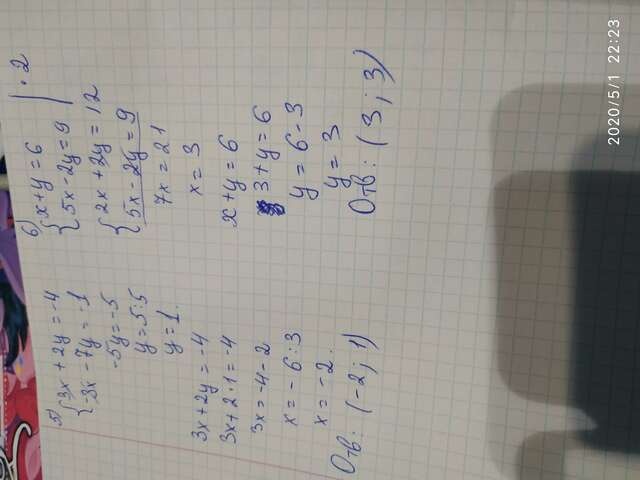 5) {3x + 2y = -4
{-3x - 7y = -1
-5y = -5
y = 5:5
y = 1.
3x + 2y = -4
3x + 2·1 = -4
3x = -4 - 2
x = -6:3
x = -2.
Отв: (-2; 1)
6) {x + y = 6 | · 2
{5x - 2y = 9
{2x + 2y = 12
{5x - 2y = 9
7x = 21
x = 3
x + y = 6
3 + y = 6
y = 6 - 3
y = 3
Отв: (3; 3)
2020/5/1 22:23